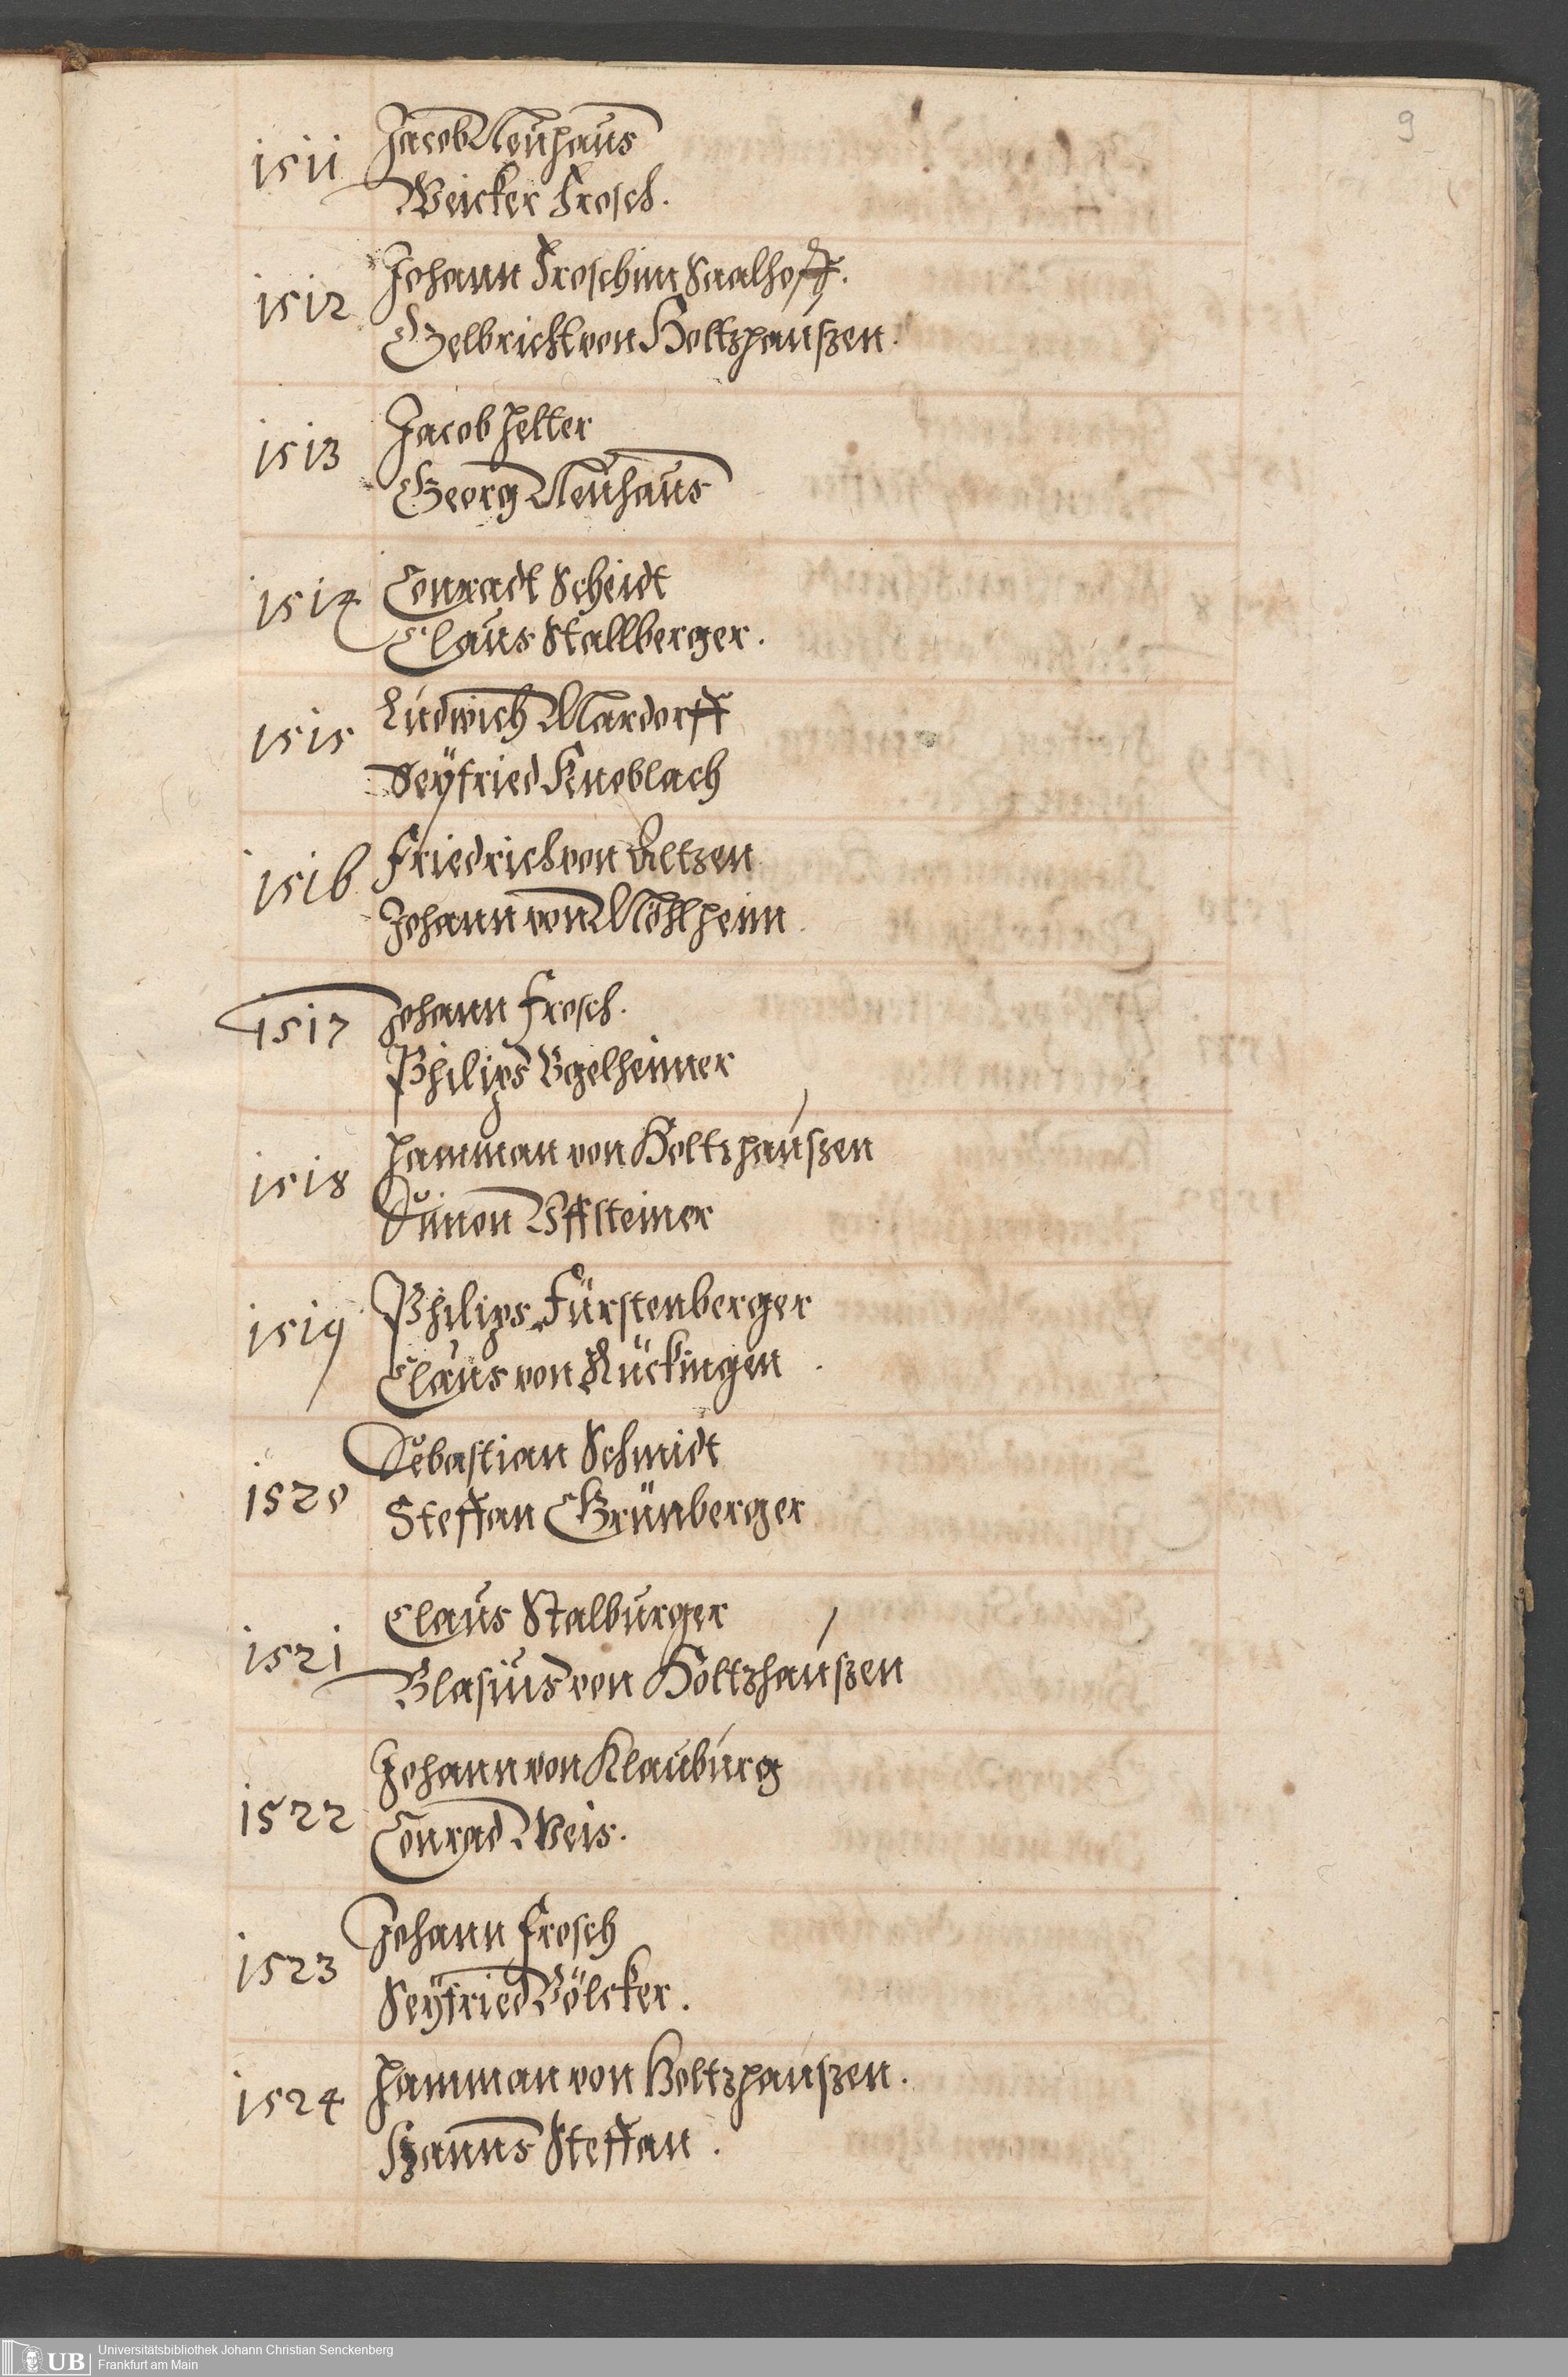 9
1511 Jacob Neuhaus
Weicker Frosch.
1512 Johann Frosch im Saalhoff.
Gelbricht von Holtzhaußen.
1513 Jacob Heller
Georg Neuhaus
1514 Conradt Scheidt
Claus Stallberger.
1515 Ludwich Mardorff
Seÿfried Knoblach
1516 Friedrich von Altzen
Johann von Möhlheim.
1517 Johann Frosch.
Philips Ugelheimer
1518 Hamman von Holtzhaußen
Simon Uffsteiner
1519 Philips Fürstenberger
Claus von Rückingen.
1520 Sebastian Schmidt
Steffan Grünberger
1521 Claus Stalburger
Blasius von Holtzhaußen
1522 Johann von Klauburg
Conrad Weis.
1523 Johann Frosch
Seÿfried Völcker.
1524 Hamman von Holtzhaußen.
Hanns Steffan.
UB Universitätsbibliothek Johann Christian Senckenberg
Frankfurt am Main